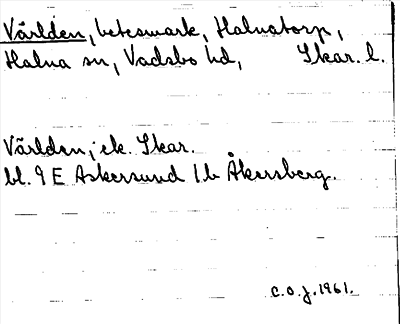 Världen, betesmark, Halnatorp,
Halna sn, Vadsbo hd, Skar. l.
Världen, ek. Skar.
bl. 9 E Askersund 1b Åkersberg.
c.o.j. 1961.